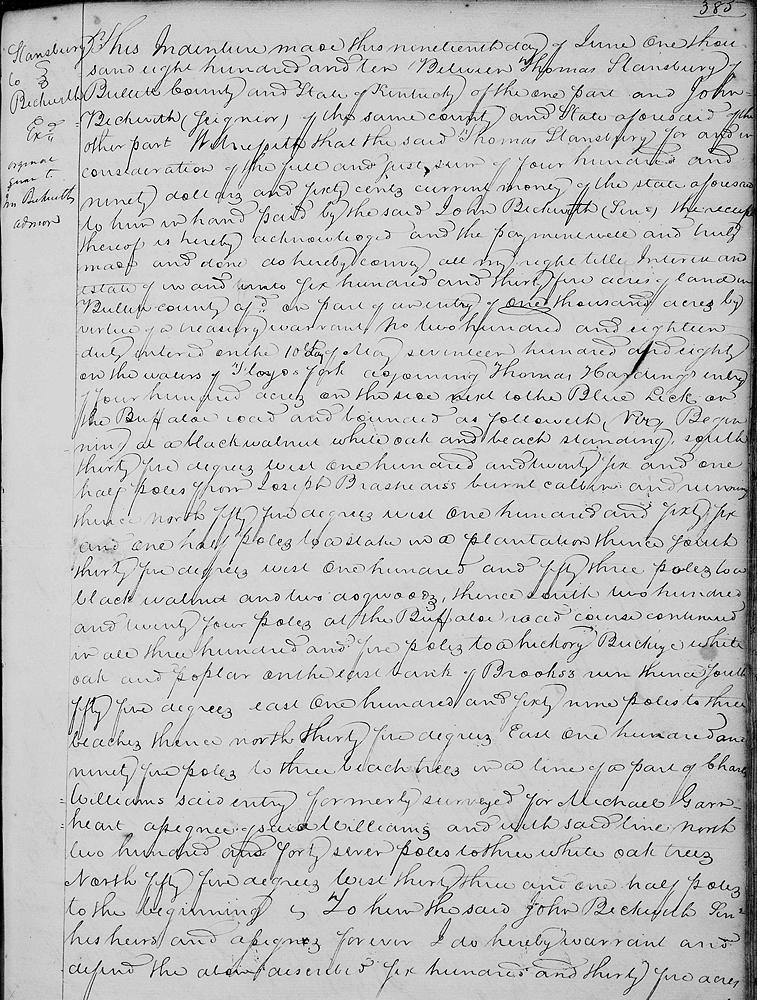 385
Stansbury
to
Beckwith
Exd
original
given to
Jn Beckwith
admor
This Indenture made this nineteenth day of June One thou-
sand eight hundred and ten Between Thomas Stansbury of
Bullitt County and State of Kentucky of the one part and John
Beckwith (Seignior) of the same county and State aforesaid of the
other part Witnesseth that the said Thomas Stansbury for and in
consideration of the full and just sum of four hundred and
ninety dollars and sixty cents current money of the state aforesaid
to him in hand paid by the said John Beckwith (Senr) the receipt
thereof is hereby acknowledged and the payment well and truly
made and done do hereby convey all my right title Interest and
estate of in and unto six hundred and thirty five acres of land in
Bullitt county afsd on part of an entry of one thousand acres by
virtue of a treasury warrant No two hundred and eighteen
duly entered on the 10 day of May seventeen hundred and eighty
on the waters of Floyds fork adjoining Thomas Hardings entry
of four hundred acres on the side next to the Blue Lick on
the Buffaloe road and bounded as followeth (Viz) Begin
ning at a black walnut white oak and beach standing south
thirty five degrees west one hundred and twenty six and one
half poles from Joseph Brashears's burnt cabbin and running
thence north fifty five degrees west one hundred and sixty six
and one half poles to a stake in a plantation thence South
thirty five degrees west one hundred and fifty three poles to a
black walnut and two dogwoods, thence south two hundred
and twenty four poles at the Buffaloe road course continued
in all three hundred and five poles to a hickory Buckeye white
oak and poplar on the east bank of Brooks's run thence South
fifty five degrees east One hundred and sixty nine poles to three
beaches thence north thirty five degrees East one hundred and
ninety five poles to three beach trees in a line of a part of Charles
Williams said entry formerly surveyed for Michael Garr-
heart assignee of said Williams and with said line North
two hundred and forty seven poles to three white oak trees
North fifty five degrees West thirty three and one half poles
to the beginning To him the said John Beckwith Sen-
his heirs and assigns forever I do hereby warrant and
defend the above described six hundred and thirty five acres